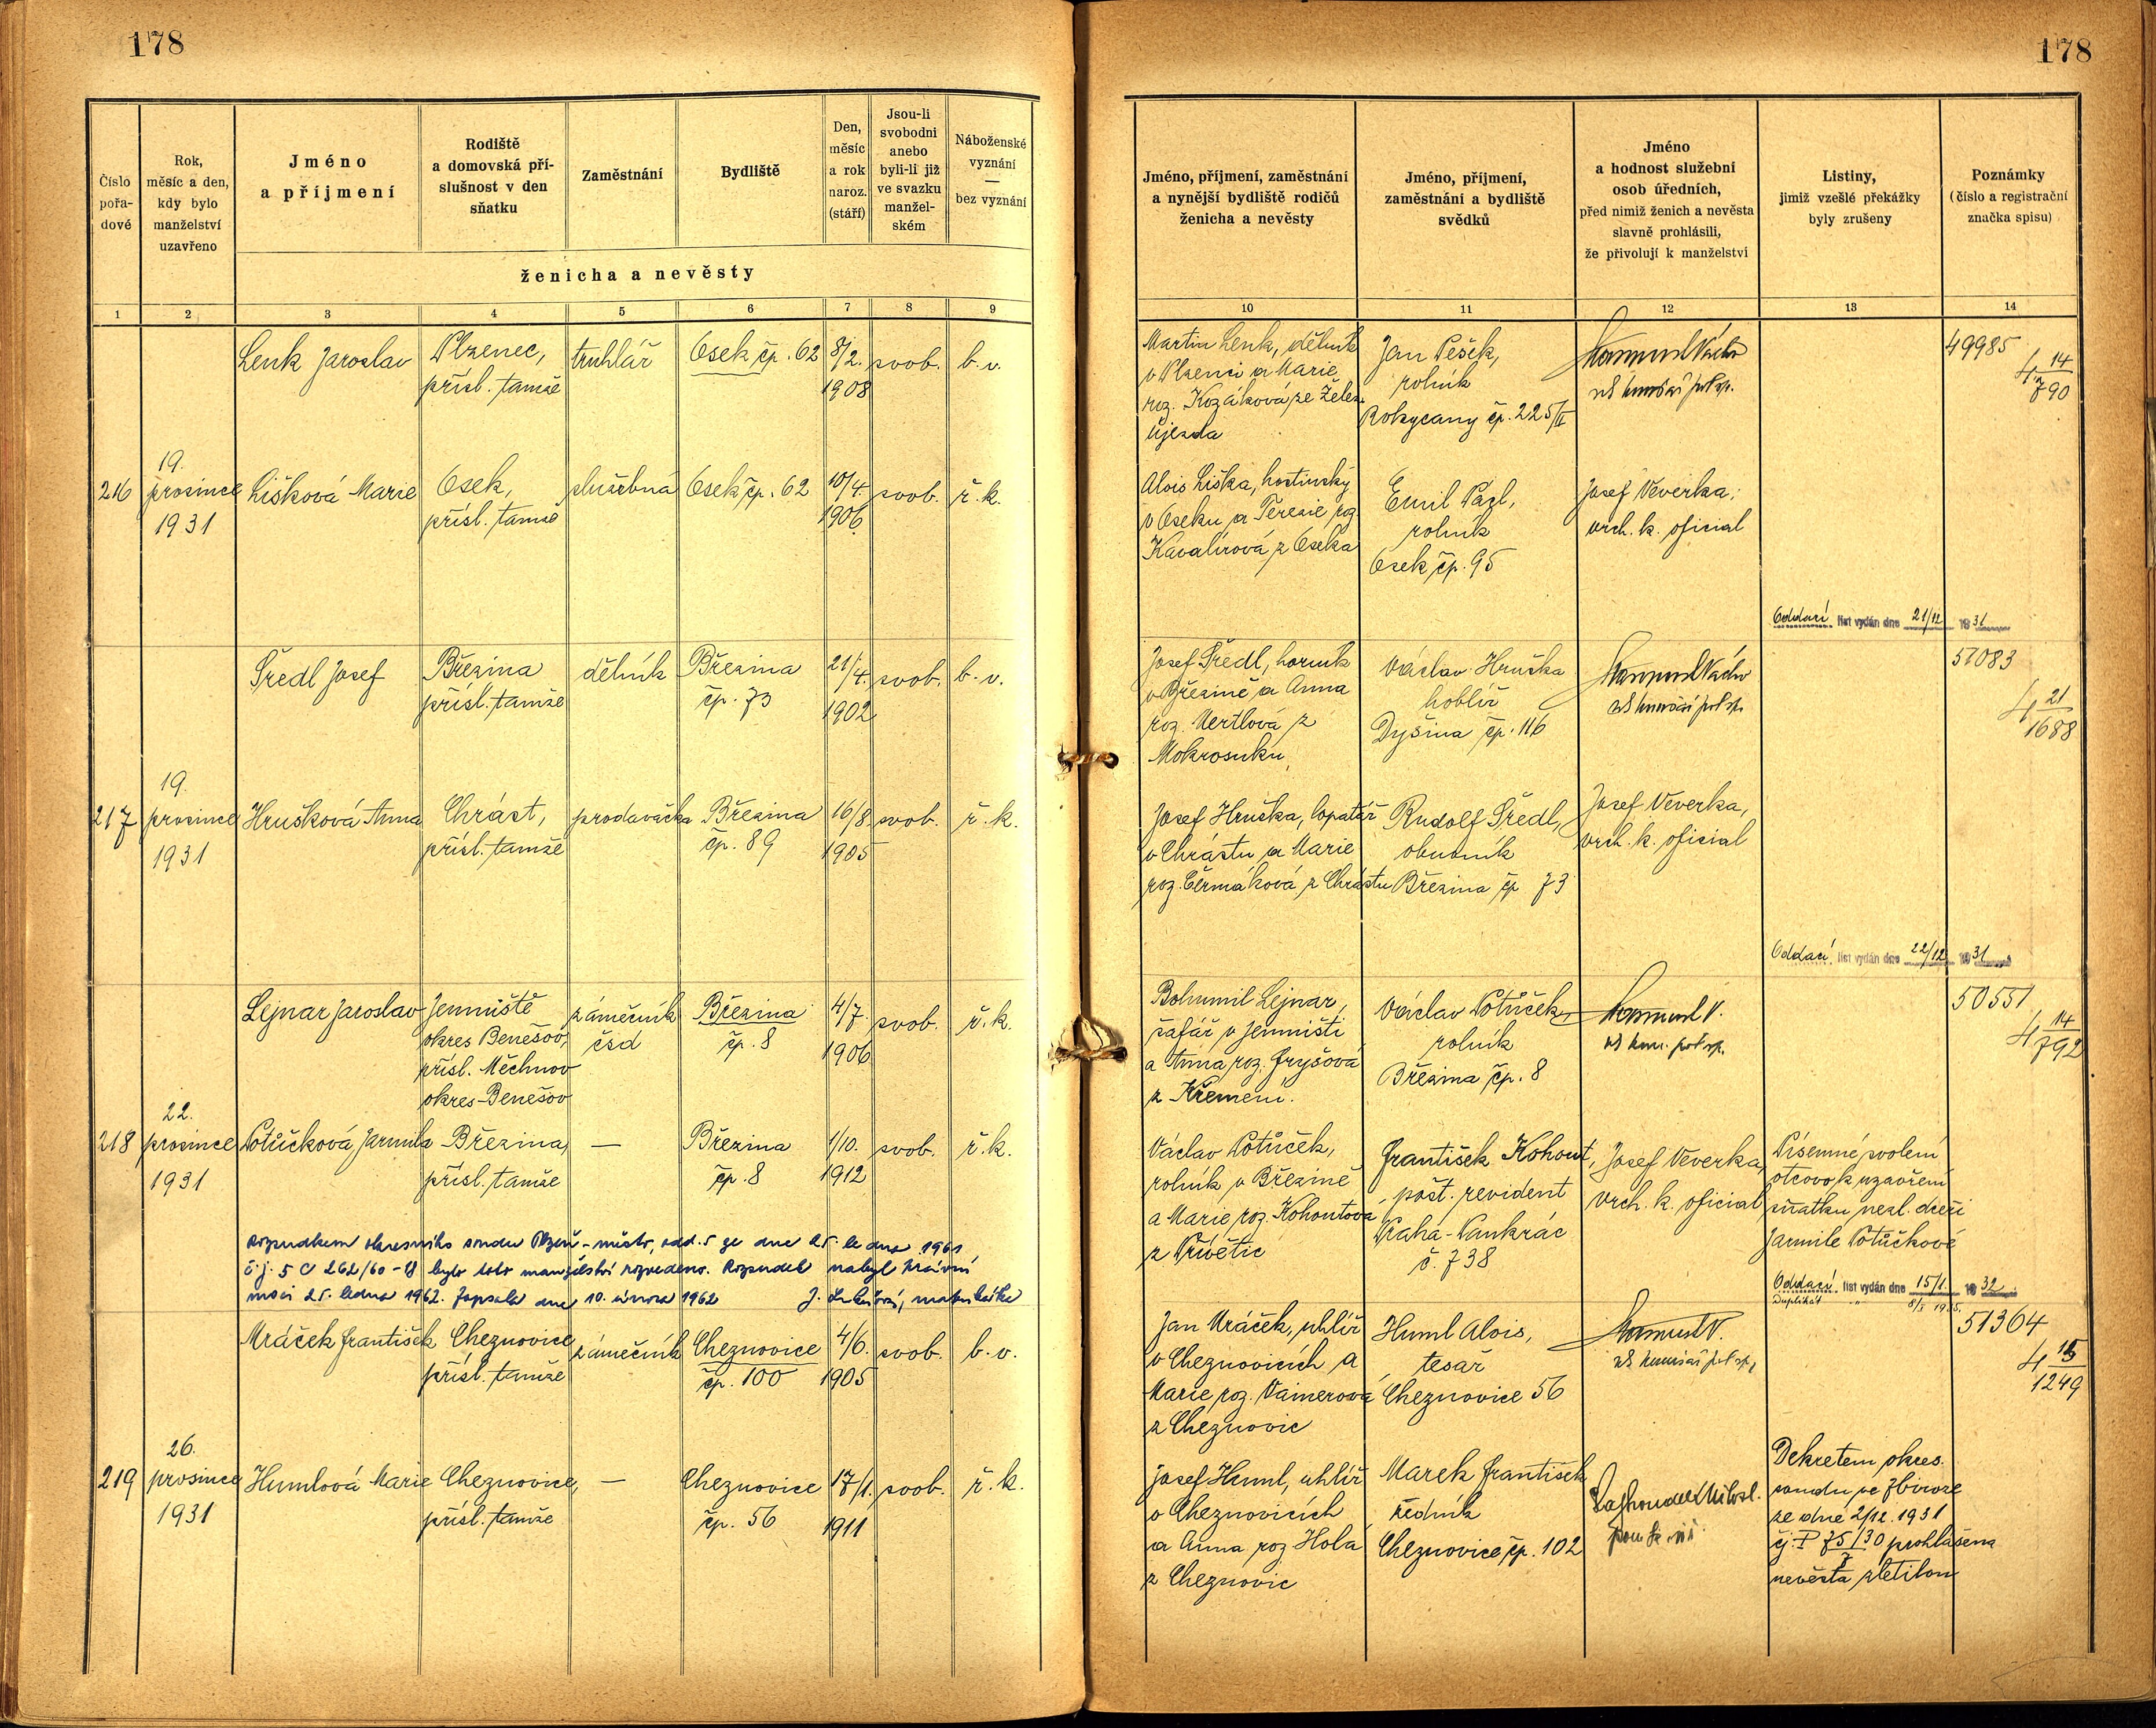 178
178
Číslo pořadové
Rok, měsíc a den, kdy bylo manželství uzavřeno
Jméno a příjmení
Rodiště a domovská příslušnost v den sňatku
Zaměstnání
Bydliště
Den, měsíc a rok naroz. (stáří)
Jsou-li svobodni anebo byli-li již ve svazku manželském
Náboženské vyznání — bez vyznání
ženicha a nevěsty
Jméno, příjmení, zaměstnání a nynější bydliště rodičů ženicha a nevěsty
Jméno, příjmení, zaměstnání a bydliště svědků
Jméno a hodnost služební osob úředních, před nimiž ženich a nevěsta slavně prohlásili, že přivolují k manželství
Listiny, jimiž vzešlé překážky byly zrušeny
Poznámky (číslo a registrační značka spisu)
1 2 3 4 5 6 7 8 9
10 11 12 13 14
Lenk Jaroslav
Plzenec,
přísl. tamže
truhlář
Osek čp. 62
8/2.
1908
svob.
b. v.
Martin Lenk, dělník
v Plzenci a Marie
roz. Kozáková ze Želez.
Újezda
Jan Pešek,
rolník
Rokycany čp. 225/II
49985
4 14/790
216
19.
prosince
1931
Lišková Marie
Osek,
přísl. tamže
služebná
Osek čp. 62
10/4.
1906
svob.
ř. k.
Alois Liška, hostinský
v Oseku a Terezie roz.
Kavalírová z Oseka
Emil Pázl,
rolník
Osek čp. 95
Josef Veverka,
vrch. k. oficial
Oddací list vydán dne 21/12 1931
Šředl Josef
Březina
přísl. tamže
dělník
Březina
čp. 73
21/4.
1902
svob.
b. v.
Josef Šředl, horník
v Březině a Anna
roz. Mertlová z
Mokrosuku
Václav Hruška
hoblíř
Dyšina čp. 116
51083
4 21/1688
217
19.
prosince
1931
Hrušková Anna
Chrást,
přísl. tamže
prodavačka
Březina
čp. 89
16/8.
1905
svob.
ř. k.
Josef Hruška, lopatář
v Chrástu a Marie
roz. Čermáková z Chrástu
Rudolf Šředl,
obuvník
Březina čp. 73
Josef Veverka,
vrch. k. oficial
Oddací list vydán dne 22/12 1931
Lejnar Jaroslav
Jemniště
okres Benešov,
přísl. Měchnov
okres Benešov
zámečník
čsd
Březina
čp. 8
4/7.
1906
svob.
ř. k.
Bohumil Lejnar,
šafář v Jemništi
a Anna roz. Fryšová
z Křemení.
Václav Potůček,
rolník
Březina čp. 8
50551
4 14/792
218
22.
prosince
1931
Potůčková Jarmila
Březina,
přísl. tamže
—
Březina
čp. 8
1/10.
1912
svob.
ř. k.
Václav Potůček,
rolník v Březině
a Marie roz. Kohoutová
z Přívětic
František Kohout,
pošt. revident
Praha-Pankrác
č. 738
Josef Veverka,
vrch. k. oficial
Písemné svolení
otcovo k uzavření
sňatku nezl. dceři
Jarmile Potůčkové
Rozsudkem okresního soudu Plzeň-město, odd. 5 ze dne 25. ledna 1961
č. j. 5 C 262/60-18 bylo toto manželství rozvedeno. Rozsudek nabyl právní
moci 25. ledna 1962. Zapsala dne 10. února 1962 matrikářka
Oddací list vydán dne 15/1. 1932
Duplikát " 8/X 1935.
Mráček František
Cheznovice
přísl. tamže
zámečník
Cheznovice
čp. 100
4/6.
1905
svob.
b. v.
Jan Mráček, uhlíř
v Cheznovicích a
Marie roz. Vainerová
z Cheznovic
Huml Alois,
tesař
Cheznovice 56
51364
4 15/1249
219
26.
prosince
1931
Humlová Marie
Cheznovice,
přísl. tamže
—
Cheznovice
čp. 56
17/1.
1911
svob.
ř. k.
Josef Huml, uhlíř
v Cheznovicích
a Anna roz. Holá
z Cheznovic
Marek František
ředník
Cheznovice čp. 102
Dekretem okres.
soudu ve Zbiroze
ze dne 2/12. 1931
čj. P 75/30 prohlášena
7
nevěsta zletilou